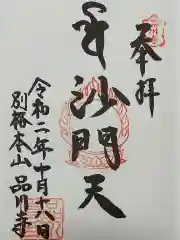 奉拝
毘沙門天
令和二年十月十八日
別格本山 品川寺